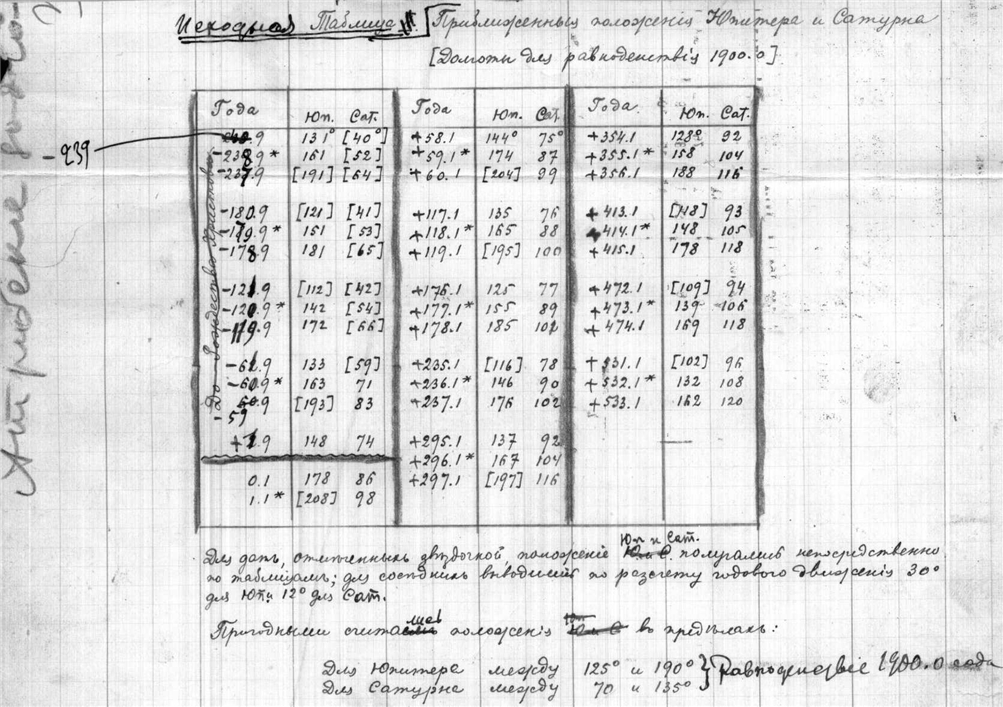 Исходная Таблица III Приближенныя положенія Юпитера и Сатурна
[Долготы для равноденствія 1900.0]
Года Юп. Сат. Года Юп. Сат. Года Юп. Сат.
-239 .9 131° [40°] +58.1 144° 75° +354.1 128° 92
-238.9* 161 [52] +59.1* 174 87 +355.1* 158 104
-237.9 [191] [64] +60.1 [204] 99 +356.1 188 116
-180.9 [121] [41] +117.1 135 76 +413.1 [118] 93
-179.9* 151 [53] +118.1* 165 88 +414.1* 148 105
-178.9 181 [65] +119.1 [195] 100 +415.1 178 118
-121.9 [112] [42] +176.1 125 77 +472.1 [109] 94
-120.9* 142 [54] +177.1* 155 89 +473.1* 139 106
-119.9 172 [66] +178.1 185 102 +474.1 169 118
-61.9 133 [59] +235.1 [116] 78 +531.1 [102] 96
-60.9* 163 71 +236.1* 146 90 +532.1* 132 108
59 .9 [193] 83 +237.1 176 102 +533.1 162 120
.9 148 74 +295.1 137 92
+296.1* 167 104
0.1 178 86 +297.1 [197] 116
1.1* [208] 98
До Рождества Христова
Юп и Сат.
Для датъ, отмеченныхъ звѣздочкой положеніе Ю и С получались непосредственно
по таблицамъ; для сосѣднихъ выводились по разсчету годового движенія 30°
для Юп. и 12° для Сат.
Пригодными считались положенія Юп Ю и С въ предѣлахъ:
Для Юпитера между 125° и 190° } Равноденствіе 1900.0 года
Для Сатурна между 70 и 135°